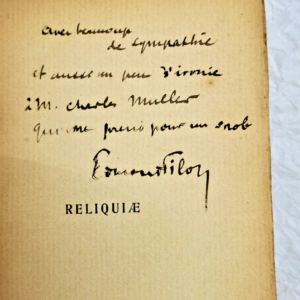 avec beaucoup
de sympathie
et aussi un peu d'ironie
à M. Charles Muller
qui me prend pour un snob
Edmond Pilon
RELIQUIÆ